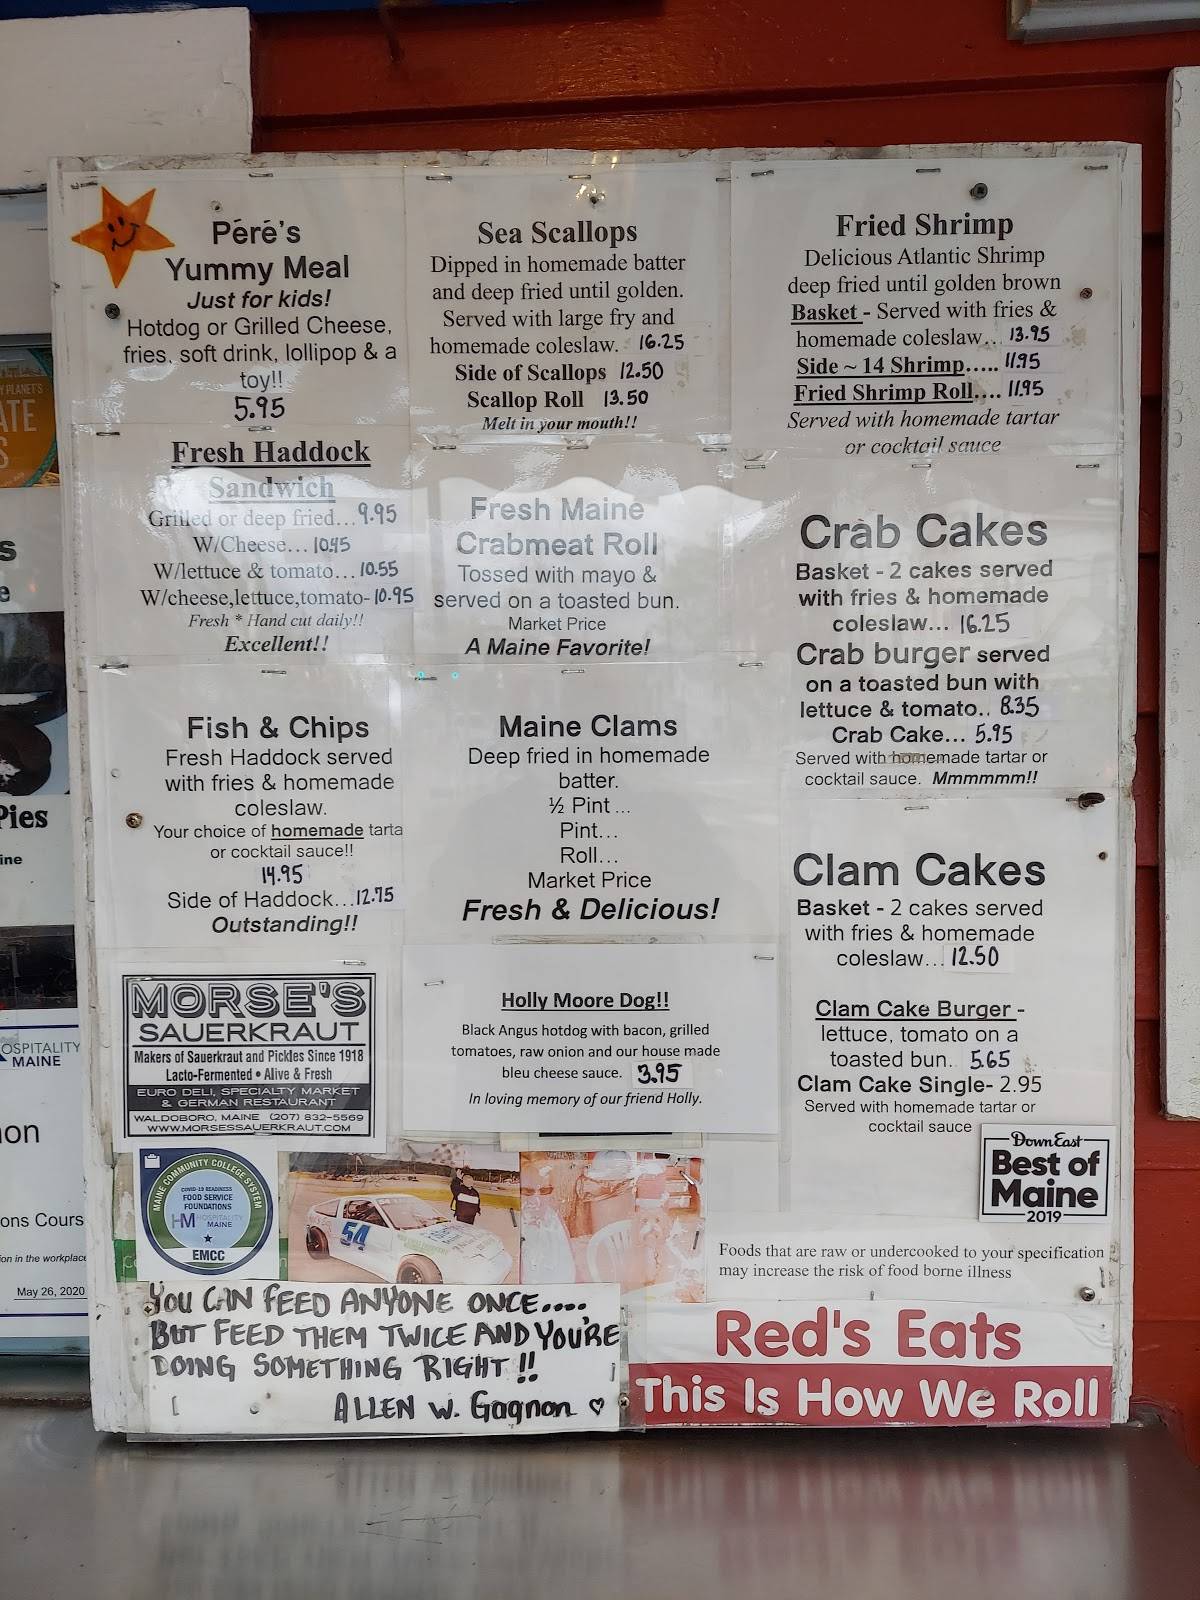 Péré's
Yummy Meal
Just for kids!
Hotdog or Grilled Cheese,
fries, soft drink, lollipop & a
toy!!
5.95
Sea Scallops
Dipped in homemade batter
and deep fried until golden.
Served with large fry and
homemade coleslaw. 16.25
Side of Scallops 12.50
Scallop Roll 13.50
Melt in your mouth!!
Fried Shrimp
Delicious Atlantic Shrimp
deep fried until golden brown
Basket - Served with fries &
homemade coleslaw... 13.95
Side ~ 14 Shrimp..... 11.95
Fried Shrimp Roll.... 11.95
Served with homemade tartar
or cocktail sauce
Fresh Haddock
Sandwich
Grilled or deep fried...9.95
W/Cheese...10.45
W/lettuce & tomato...10.55
W/cheese,lettuce,tomato-10.95
Fresh * Hand cut daily!!
Excellent!!
Fresh Maine
Crabmeat Roll
Tossed with mayo &
served on a toasted bun.
Market Price
A Maine Favorite!
Crab Cakes
Basket - 2 cakes served
with fries & homemade
coleslaw... 16.25
Crab burger served
on a toasted bun with
lettuce & tomato.. 8.35
Crab Cake... 5.95
Served with homemade tartar or
cocktail sauce. Mmmmmm!!
Fish & Chips
Fresh Haddock served
with fries & homemade
coleslaw.
Your choice of homemade tarta
or cocktail sauce!!
14.95
Side of Haddock...12.75
Outstanding!!
Maine Clams
Deep fried in homemade
batter.
½ Pint ...
Pint...
Roll...
Market Price
Fresh & Delicious!
Clam Cakes
Basket - 2 cakes served
with fries & homemade
coleslaw... 12.50
Clam Cake Burger -
lettuce, tomato on a
toasted bun. 5.65
Clam Cake Single- 2.95
Served with homemade tartar or
cocktail sauce
MORSE'S
SAUERKRAUT
Makers of Sauerkraut and Pickles Since 1918
Lacto-Fermented • Alive & Fresh
EURO DELI, SPECIALTY MARKET
& GERMAN RESTAURANT
WALDOBORO, MAINE (207) 832-5569
WWW.MORSESSAUERKRAUT.COM
Holly Moore Dog!!
Black Angus hotdog with bacon, grilled
tomatoes, raw onion and our house made
bleu cheese sauce. 3.95
In loving memory of our friend Holly.
DownEast
Best of
Maine
2019
MAINE COMMUNITY COLLEGE SYSTEM
COVID-19 READINESS
FOOD SERVICE
FOUNDATIONS
HM HOSPITALITY
MAINE
EMCC
54
Foods that are raw or undercooked to your specification
may increase the risk of food borne illness
YOU CAN FEED ANYONE ONCE....
BUT FEED THEM TWICE AND YOU'RE
DOING SOMETHING RIGHT!!
ALLEN W. Gagnon ♡
Red's Eats
This Is How We Roll
Pies
ine
OSPITALITY
MAINE
on
ons Cours
on in the workplace
May 26, 2020